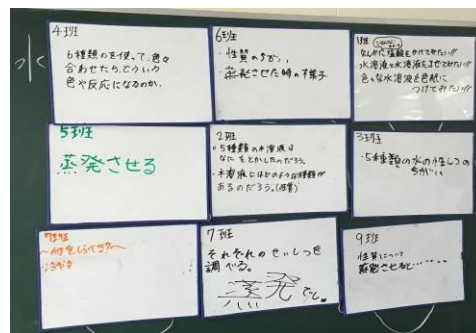 水
4班
6種類のを使って、色々
合わせたら、どういう
色や反応になるのか。
6班
・性質のちがい
・蒸発させた時の様子
1班
なんかに塩酸をかけてみたい!!
水溶液と水溶液をまぜてみたい!!
色々な水溶液を色紙に
つけてみたい!!
5班
蒸発させる
2班
・5種類の水溶液は
なにをとかしたのだろう。
・水溶液にはどのような種類が
あるのだろう。(性質)
3班
・5種類の水の性しつの
ちがい
7班
それぞれのせいしつを
調べる。
蒸発
9班
性質について
蒸発させると・・・・・・